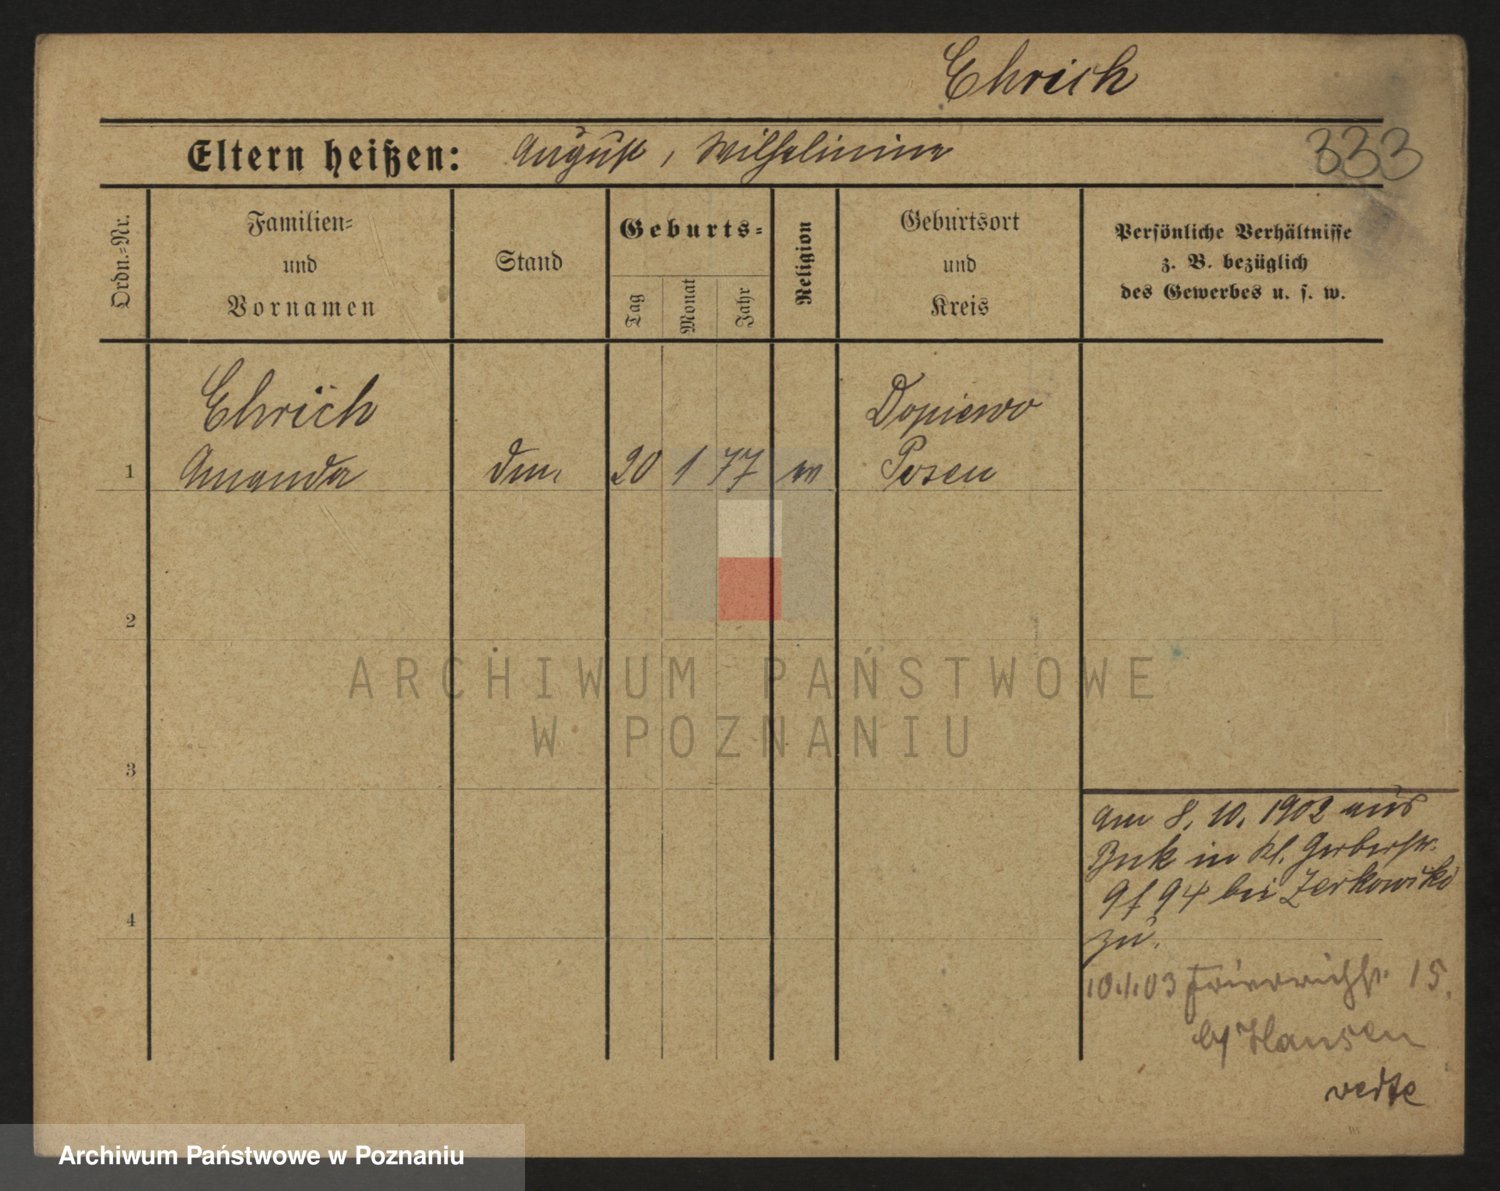 Ehrich
Eltern heißen: August, Wilhelmine
333
Ordn.=Nr.
Familien=
und
Vornamen
Stand
Geburts=
Tag
Monat
Jahr
Religion
Geburtsort
und
Kreis
Persönliche Verhältnisse
z. B. bezüglich
des Gewerbes u. s. w.
Ehrich
Dopiewo
1 Amanda 20 1 77 Posen
2
ARCHIWUM PAŃSTWOWE
W POZNANIU
3
am 8. 10. 1902 aus
Buk in kl. Gerberstr.
94 bei Zerkowski
4
zu.
10.1.03 Friedrichstr. 15.
b/ Hansen
verte
Archiwum Państwowe w Poznaniu